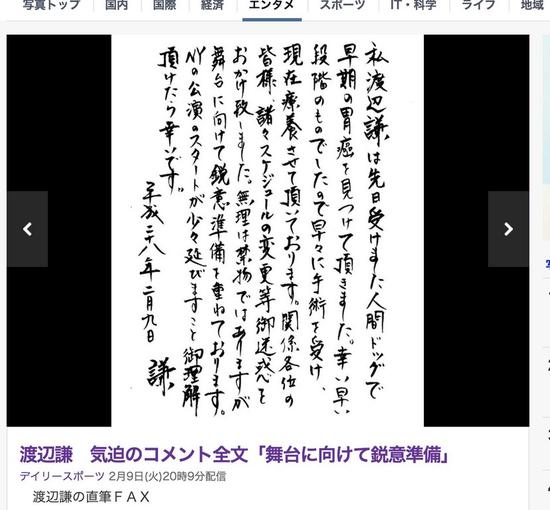 写真トップ 国内 国際 経済 エンタメ スポーツ IT・科学 ライフ 地域
私渡辺謙は先日受けました人間ドッグで
早期の胃癌を見つけて頂きました。幸い早い
段階のものでしたので早々に手術を受け、
現在療養させて頂いております。関係各位の
皆様、諸々スケジュールの変更等御迷惑を
おかけ致しました。無理は禁物ではありますが
舞台に向けて鋭意準備を重ねております。
NYの公演のスタートが少々延びますこと御理解
頂けたら幸いです。
平成二十八年二月九日
謙
渡辺謙 気迫のコメント全文「舞台に向けて鋭意準備」
デイリースポーツ 2月9日(火)20時9分配信
渡辺謙の直筆ＦＡＸ